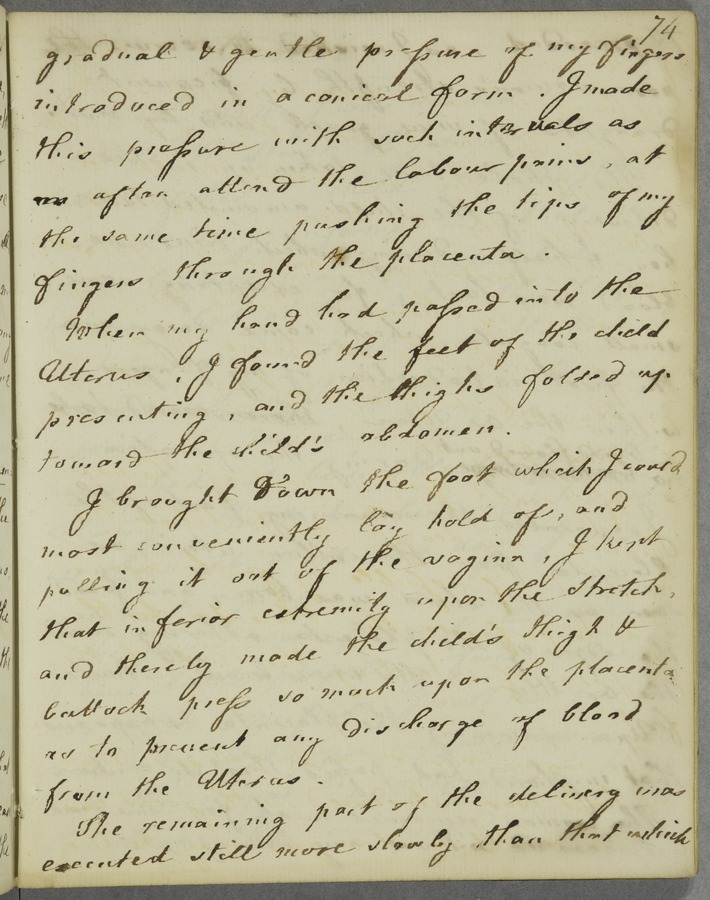 74
gradual & gentle pressure of my fingers
introduced in a conical form. I made
this pressure with such intervals as
often attend the labour pains, at
the same time pushing the tips of my
fingers through the placenta.
When my hand had passed into the
Uterus, I found the feet of the child
presenting, and the thighs folded up
toward the child's abdomen.
I brought down the foot which I could
most conveniently lay hold of, and
pulling it out of the vagina, I kept
that inferior extremity upon the stretch,
and thereby made the child's thigh &
buttock press so much upon the placenta
as to prevent any discharge of blood
from the Uterus.
The remaining part of the delivery was
executed still more slowly than that which